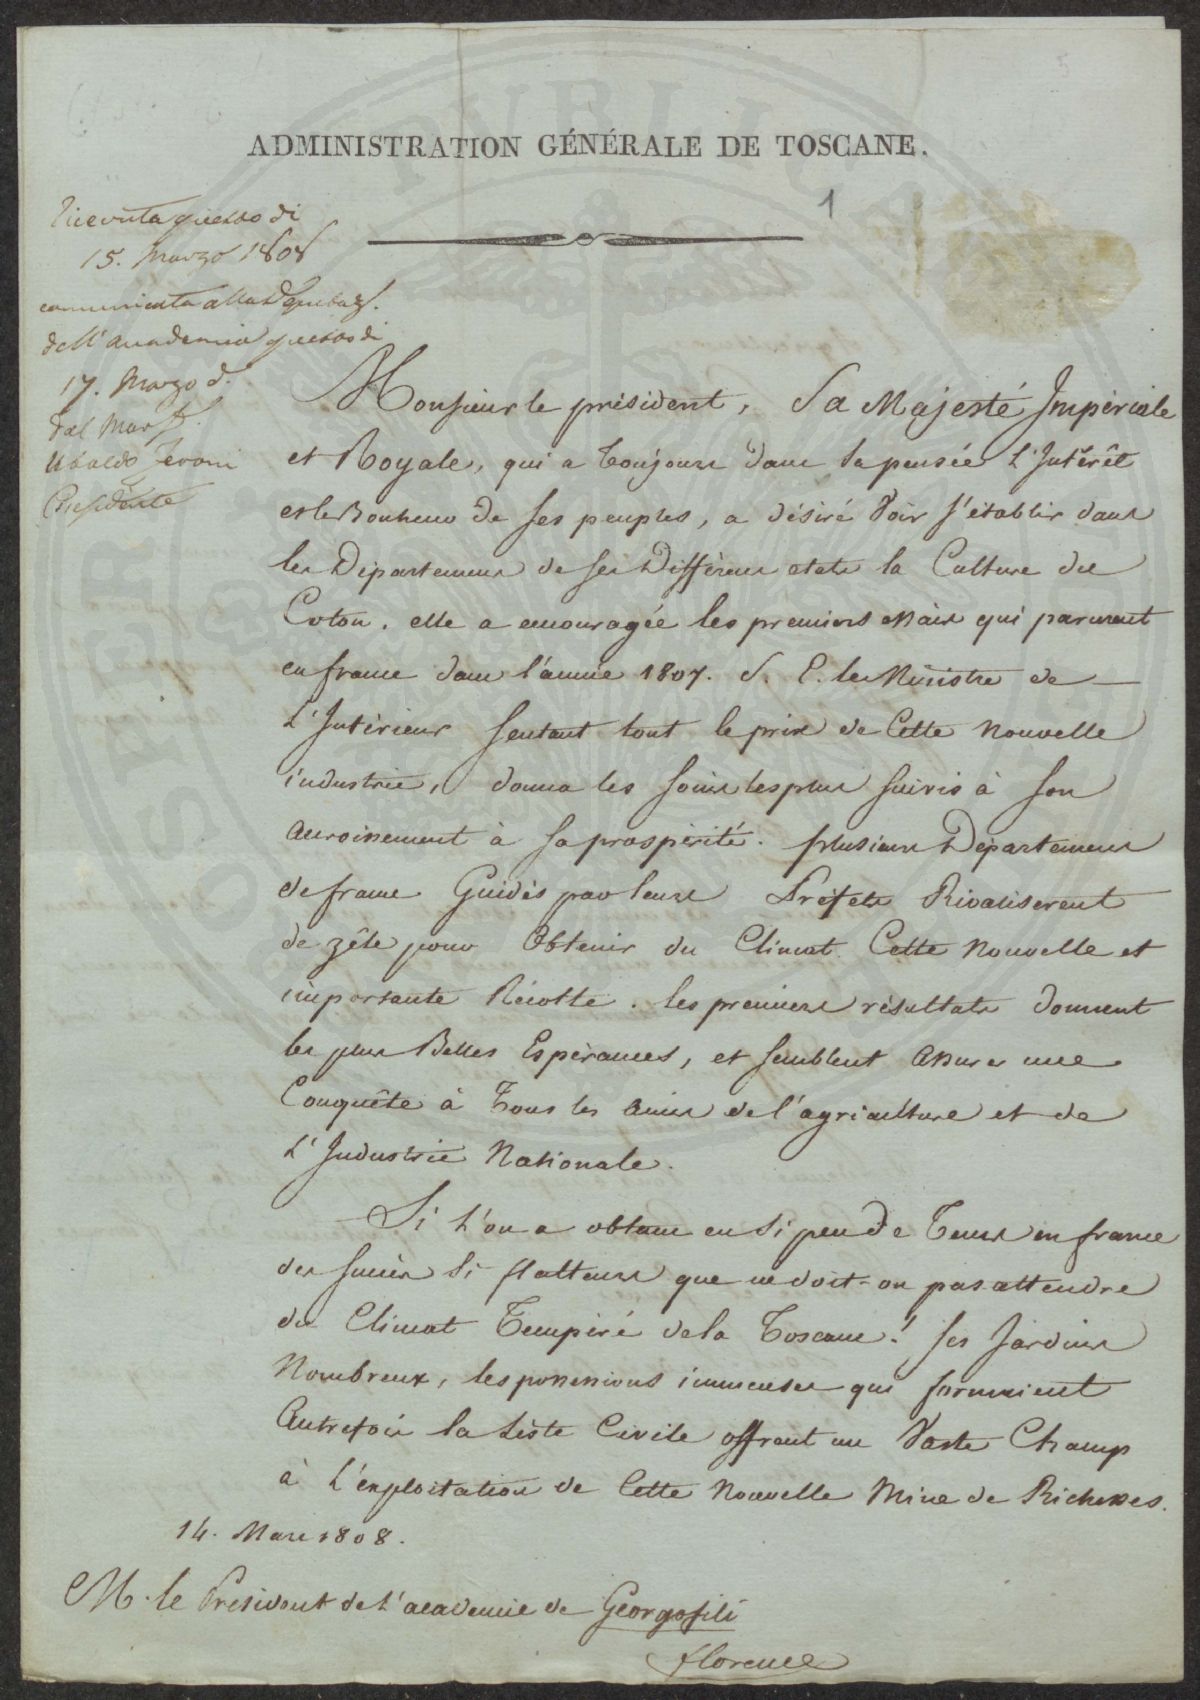 ADMINISTRATION GÉNÉRALE DE TOSCANE.
1
Ricevuta questo dì
15. Marzo 1808
comunicata alla Deputaz.
dell'Accademia questo dì
17. Marzo d.
dal Mar
Ubaldo Feroni
Presidente
Monsieur le président, Sa Majesté Impériale
et Royale, qui a toujours dans sa pensée L'Intérêt
et le Bonheur de ses peuples, a désiré Voir s'établir dans
les Départemens de ses Différens etats la Culture du
Coton. elle a encouragée les premiers essais qui parurent
en france dans l'année 1807. S. E. le Ministre de
L'Intérieur sentant tout le prix de Cette Nouvelle
industrie, donna les soins les plus suivis à son
accroissement à sa prospérité. plusieurs Départemens
de france Guidés par leurs Préfets Rivaliserent
de zêle pour Obtenir du Climat Cette Nouvelle et
importante Récolte. les premiers résultats donnent
les plus Belles Espérances, et semblent assurer une
Conquête à Tous les amis de l'agriculture et de
L'Industrie Nationale.
Si L'on a obtenu en si peu de Tems en france
des succès si flatteurs que ne doit-on pas attendre
du Climat Tempéré de la Toscane! ses Jardins
Nombreux, les possessions immenses qui formaient
Autrefois la Liste Civile offrent un Vaste Champ
à L'exploitation de Cette Nouvelle Mine de Richesses.
14. Mars 1808.
M. le Président de L'academie de Georgofili
florence